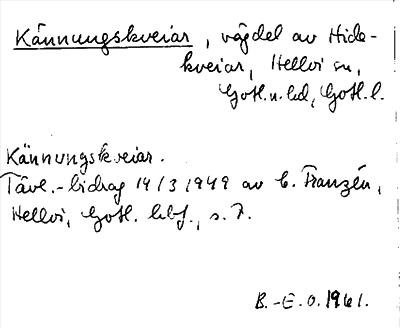 Kännungskveiar, vägdel av Hide-
kveiar, Hellvi sn,
Gotl. n. hd, Gotl. l.
Kännungskveiar.
Tävl.-bidrag 14/3 1949 av C. Franzén,
Hellvi, Gotl. hbf., s. 7.
B.-E. O. 1961.